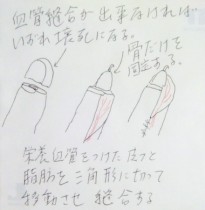 血管縫合が出来なければ
いずれ壊死になる。
骨だけを
固定する。
栄養血管をつけた皮フと
脂肪を三角形に切って
移動させ縫合する